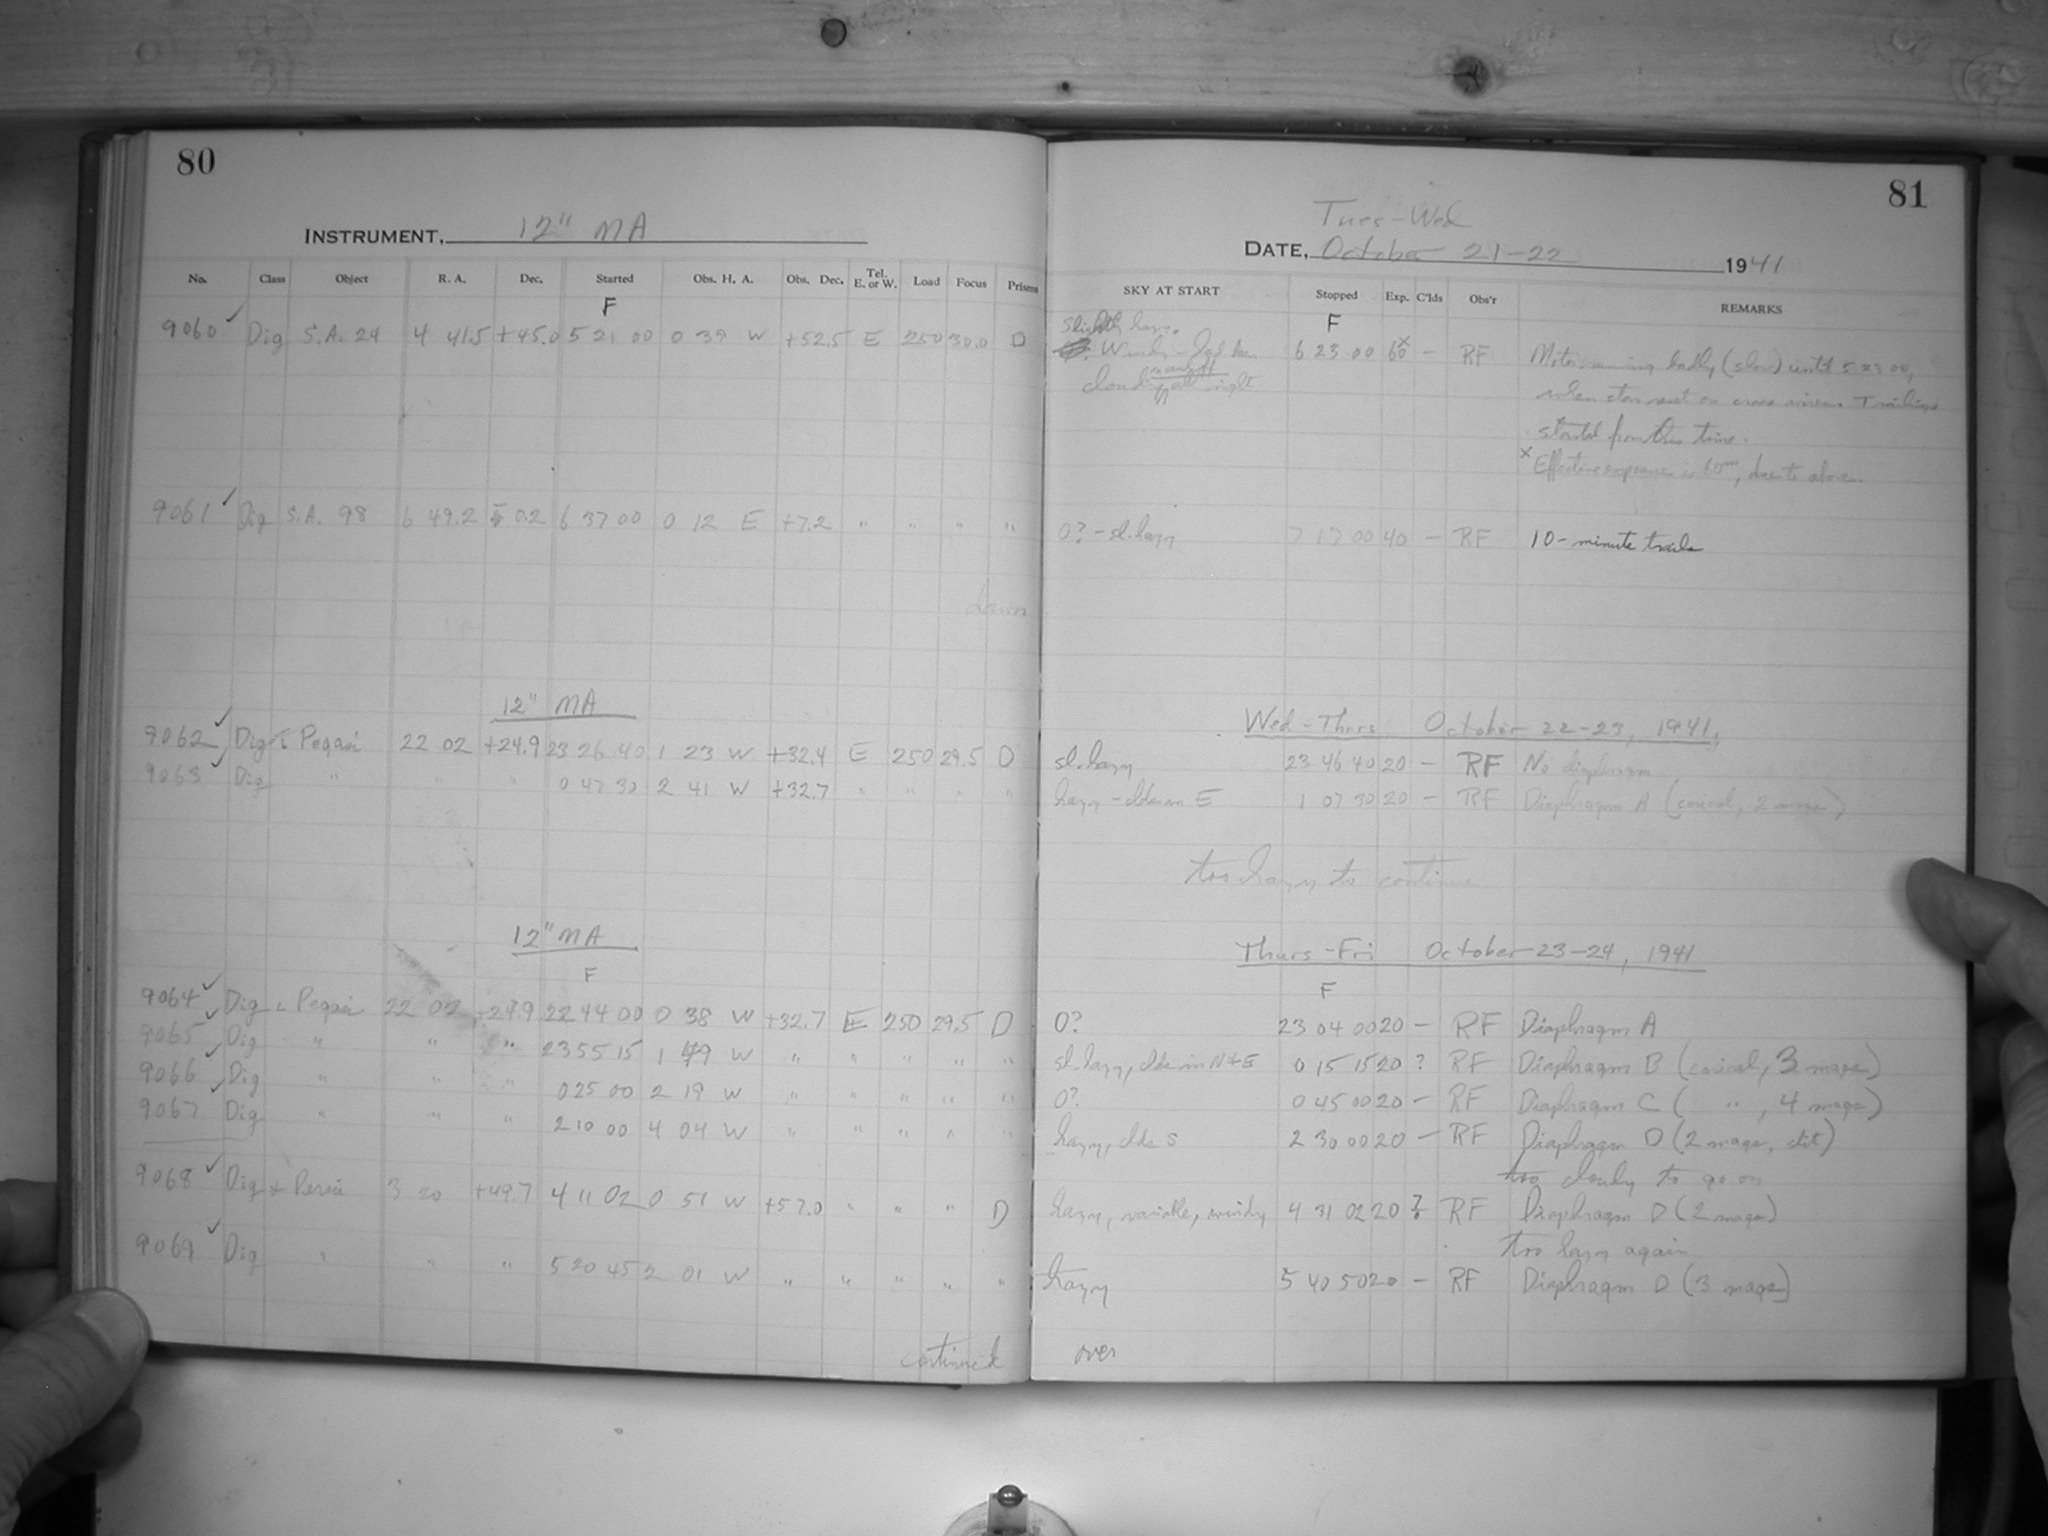 80
INSTRUMENT, 12" MA
No. Class Object R. A. Dec. Started Obs. H. A. Obs. Dec. Tel. E. or W. Load Focus Prism
F
9060 ✓ Dig S.A. 24 4 41.5 +45.0 5 21 00 0 39 W +52.5 E 250 30.0 D
9061 ✓ Dig S.A. 98 6 49.2 0.2 6 37 00 0 12 E +7.2 " " " "
dawn
12" MA
9062 ✓ Dig ι Pegasi 22 02 +24.9 23 26 40 1 23 W +32.4 E 250 29.5 D
9063 ✓ Dig " " " 0 47 30 2 41 W +32.7 " " " "
12" MA
F
9064 ✓ Dig ι Pegasi 22 02 +24.9 22 44 00 0 38 W +32.7 E 250 29.5 D
9065 ✓ Dig " " " 23 55 15 1 49 W " " " " "
9066 ✓ Dig " " " 0 25 00 2 19 W " " " " "
9067 ✓ Dig " " " 2 10 00 4 04 W " " " " "
9068 ✓ Dig α Persei 3 20 +49.7 4 11 02 0 51 W +57.0 " " " D
9069 ✓ Dig " " " 5 20 45 2 01 W " " " " "
continued
81
Tues-Wed
DATE, October 21-22 1941
SKY AT START Stopped Exp. C'lds Obs'r REMARKS
F
Slightly hazy.
Windy - 6 23 00 60 x - RF Motor running badly (slow) until 5 23 00,
cloudy all night when star reset on cross wires. Trailings
started from this time.
x Effective exposure is 60m, due to above.
0? - sl. hazy 7 17 00 40 - RF 10-minute trails
Wed-Thurs October 22-23, 1941,
sl. hazy 23 46 40 20 - RF No diaphragm
hazy - clds in E 1 07 30 20 - RF Diaphragm A (conical, 2 mags)
too hazy to continue
Thurs-Fri October 23-24, 1941
F
0? 23 04 00 20 - RF Diaphragm A
sl. hazy, clds in N+E 0 15 15 20 ? RF Diaphragm B (conical, 3 mags)
0? 0 45 00 20 - RF Diaphragm C ( " , 4 mags)
hazy, clds S 2 30 00 20 - RF Diaphragm D (2 mags, slit)
too cloudy to go on
hazy, variable, windy 4 31 02 20 ? RF Diaphragm D (2 mags)
too hazy again
hazy 5 40 50 20 - RF Diaphragm D (3 mags)
over